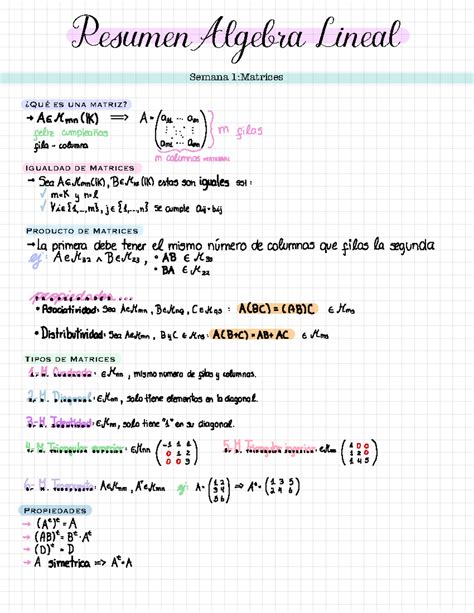 Resumen Algebra Lineal
Semana 1:Matrices
¿QUÉ ES UNA MATRIZ?
→ A∈Mmn(IK) ⟹ A=(a11 ... a1n ⋮ ⋱ ⋮ am1 ... amn) } m filas
feliz cumpleaños
fila - columna
m columnas
IGUALDAD DE MATRICES
→ Sea A∈Mmn(IK), B∈M(IK) estas son iguales ssi:
✓ m=k y n=l
✓ ∀i∈{1,...,m}, j∈{1,...,n} se cumple aij=bij
PRODUCTO DE MATRICES
→La primera debe tener el mismo número de columnas que filas la segunda
ej: A∈M32 ∧ B∈M23, • AB ∈ M33
• BA ∈ M22
propiedades...
• Asociatividad: Sea A∈Mmn, B∈Mnq, C∈Mqs : A(BC)=(AB)C ∈Mms
• Distributividad: Sea A∈Mmn, B y C ∈ Mns: A(B+C)=AB+AC ∈ Ms
TIPOS DE MATRICES
1.-M. Cuadrada: ∈Mnn, mismo numero de filas y columnas.
2.-M. Diagonal: ∈Mnn, solo tiene elementos en la diagonal.
3.-M. Identidad: ∈Mnn, solo tiene "1" en su diagonal.
4.-M. Triangular superior: ∈Mnn (-1 1 1 0 1 2 0 0 3) 5.M. Triangular inferior: ∈Mnn (1 0 0 1 1 0 2 4 5)
6.-M. Transpuesta: A∈Mmn, Aᵗ∈Mnm ej: A=(1 2 3 4 5 6) ⇒ Aᵗ=(1 3 5 2 4 6)
PROPIEDADES
→ (Aᵗ)ᵗ = A
→ (AB)ᵗ = Bᵗ·Aᵗ
→ (D)ᵗ = D
→ A simetrica => Aᵗ=A